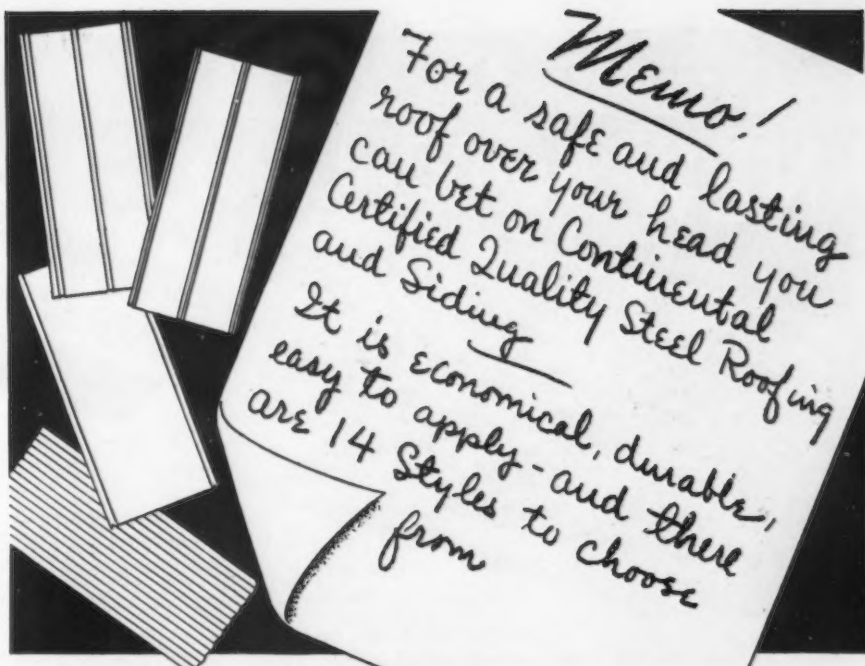 Memo!
For a safe and lasting
roof over your head you
can bet on Continental
Certified Quality Steel Roofing
and Siding
It is economical, durable,
easy to apply - and there
are 14 Styles to choose
from